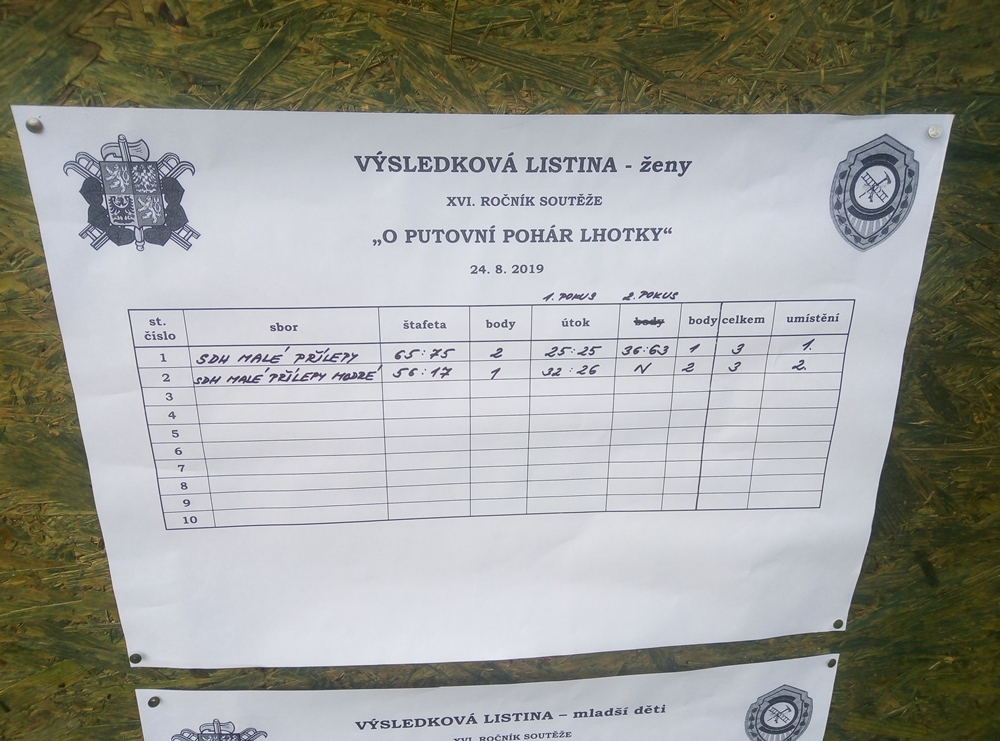 VÝSLEDKOVÁ LISTINA - ženy
XVI. ROČNÍK SOUTĚŽE
„O PUTOVNÍ POHÁR LHOTKY“
24. 8. 2019
1. POKUS 2. POKUS
st. číslo sbor štafeta body útok body body celkem umístění
1 SDH MALÉ PŘÍLEPY 65:75 2 25:25 36:63 1 3 1.
2 SDH MALÉ PŘÍLEPY MODRÉ 56:17 1 32:26 N 2 3 2.
3
4
5
6
7
8
9
10
VÝSLEDKOVÁ LISTINA – mladší děti
XVI. ROČNÍK SOUTĚŽE